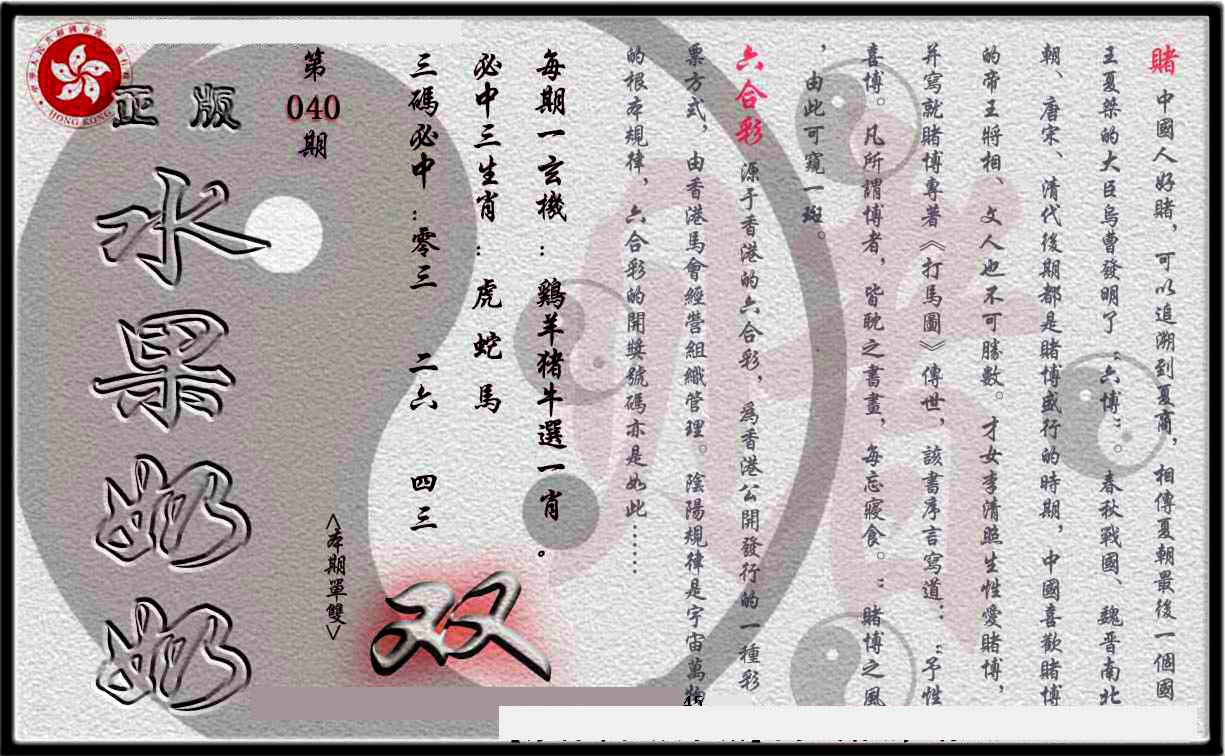 賭 中國人好賭，可以追溯到夏商，相傳夏朝最後一個國
王夏桀的大臣烏曹發明了“六博”。春秋戰國、魏晋南北
朝、唐宋、清代後期都是賭博盛行的時期，中國喜歡賭博
的帝王將相、文人也不可勝數。才女李清照生性愛賭博，
并寫就賭博專著《打馬圖》傳世，該書序言寫道：“予性
喜博。凡所謂博者，皆耽之晝畫，每忘寢食。”賭博之風
，由此可窺一斑。
六合彩 源于香港的六合彩，爲香港公開發行的一種彩
票方式，由香港馬會經營組織管理。陰陽規律是宇宙萬物
的根本規律，六合彩的開獎號碼亦是如此……
每期一玄機：鷄羊猪牛選一肖。
必中三生肖：虎 蛇 馬
三碼必中：零三 二六 四三
<本期單雙>
双
第
040
期
正版
水果奶奶
HONG KONG